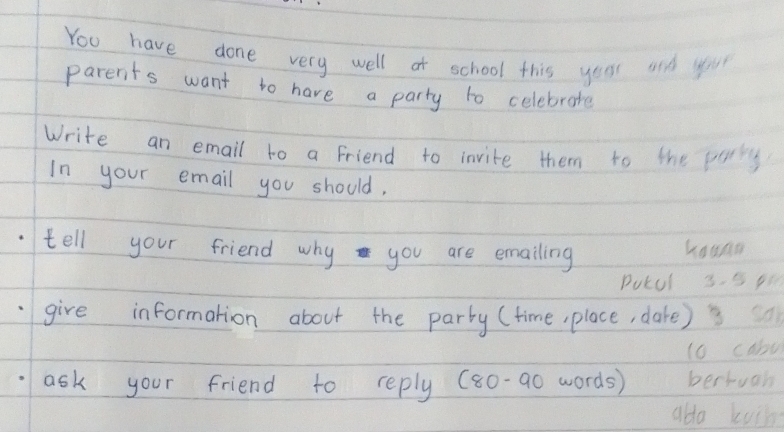 You have done very well at school this year and your
parents want to have a party to celebrate
Write an email to a friend to invite them to the party
In your email you should.
• tell your friend why you are emailing
Pukul 3-5 pm
• give information about the party (time, place, date) 3
10
• ask your friend to reply (80-90 words)
bertuah